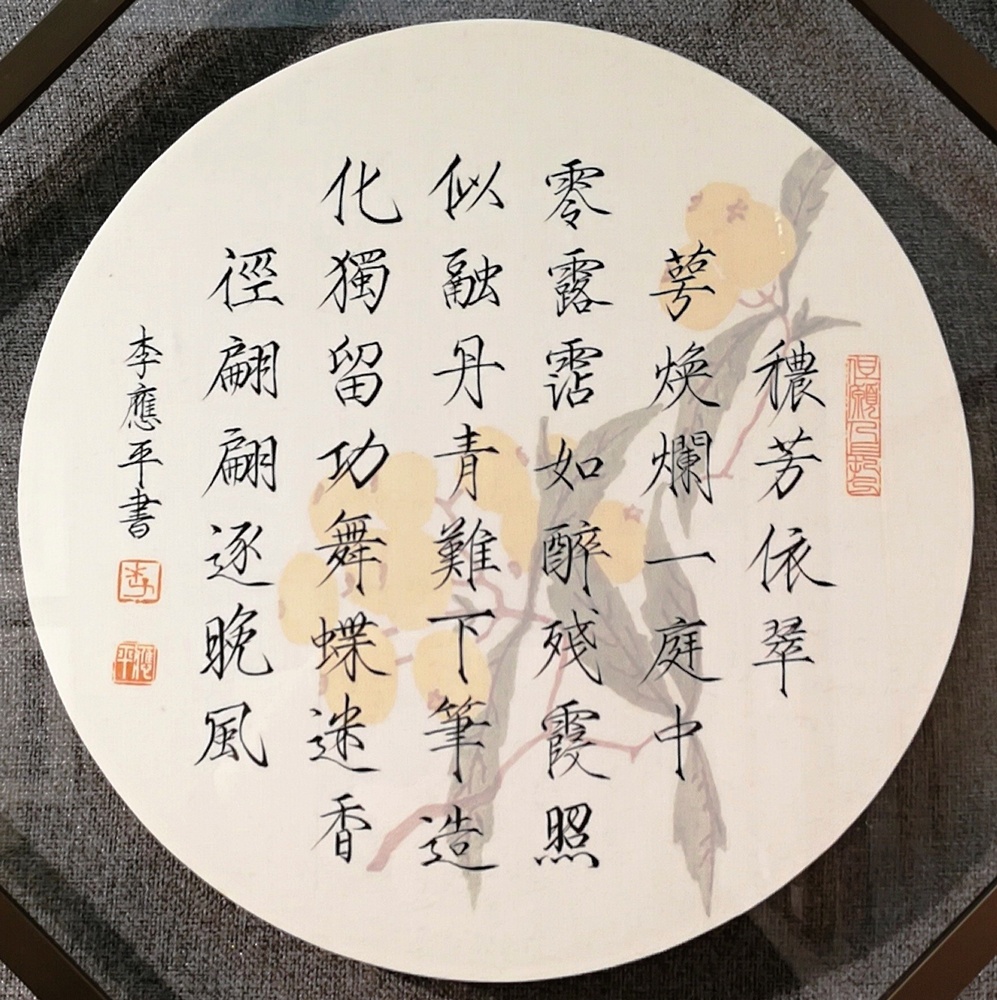 但願人長久
穠芳依翠
萼煥爛一庭中
零露霑如醉殘霞照
似融丹青難下筆造
化獨留功舞蝶迷香
徑翩翩逐晚風
李應平書
李
應平